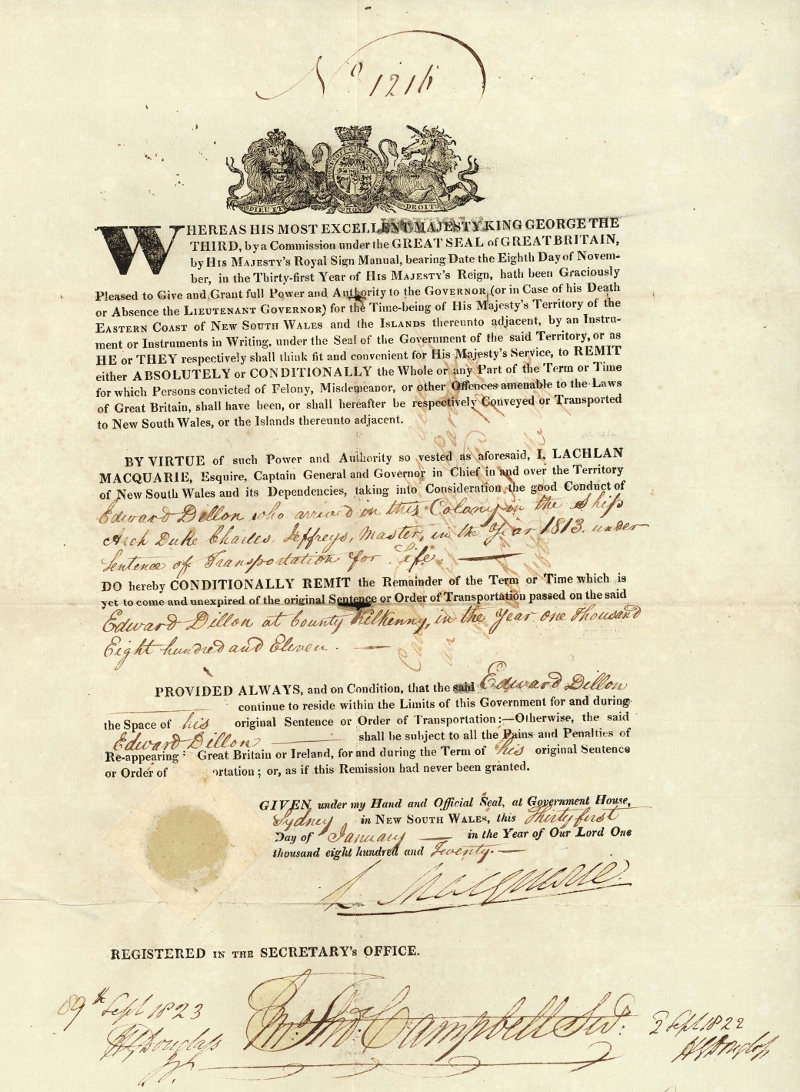 No 1216
DIEU ET MON DROIT
WHEREAS HIS MOST EXCELLENT MAJESTY KING GEORGE THE
THIRD, by a Commission under the GREAT SEAL of GREAT BRITAIN,
by HIS MAJESTY's Royal Sign Manual, bearing Date the Eighth Day of Novem-
ber, in the Thirty-first Year of HIS MAJESTY's Reign, hath been Graciously
Pleased to Give and Grant full Power and Authority to the GOVERNOR (or in Case of his Death
or Absence the LIEUTENANT GOVERNOR) for the Time-being of His Majesty's Territory of the
EASTERN COAST of NEW SOUTH WALES and the ISLANDS thereunto adjacent, by an Instru-
ment or Instruments in Writing, under the Seal of the Government of the said Territory, or as
HE or THEY respectively shall think fit and convenient for His Majesty's Service, to REMIT
either ABSOLUTELY or CONDITIONALLY the Whole or any Part of the Term or Time
for which Persons convicted of Felony, Misdemeanor, or other Offences amenable to the Laws
of Great Britain, shall have been, or shall hereafter be respectively Conveyed or Transported
to New South Wales, or the Islands thereunto adjacent.
BY VIRTUE of such Power and Authority so vested as aforesaid, I, LACHLAN
MACQUARIE, Esquire, Captain General and Governor in Chief in and over the Territory
of New South Wales and its Dependencies, taking into Consideration the good Conduct of
Edward Dillon who arrived in this Colony in the Ship
Arch Duke Charles, Jeffreys, Master, in the Year 1813. under
Sentence of Transportation for Life.
DO hereby CONDITIONALLY REMIT the Remainder of the Term or Time which is
yet to come and unexpired of the original Sentence or Order of Transportation passed on the said
Edward Dillon at County Kilkenny, in the Year One Thousand
Eight hundred and Eleven.
PROVIDED ALWAYS, and on Condition, that the said Edward Dillon
continue to reside within the Limits of this Government for and during
the Space of his original Sentence or Order of Transportation:—Otherwise, the said
Edward Dillon shall be subject to all the Pains and Penalties of
Re-appearing in Great Britain or Ireland, for and during the Term of his original Sentence
or Order of portation; or, as if this Remission had never been granted.
GIVEN under my Hand and Official Seal, at Government House,
Sydney in NEW SOUTH WALES, this Thirty first
Day of January in the Year of Our Lord One
thousand eight hundred and Twenty.
L Macquarie
REGISTERED IN THE SECRETARY's OFFICE.
Jno. Thos. Campbell Secy.
Sept 1823
H G Douglass
2 Sept 1822
H G Douglass